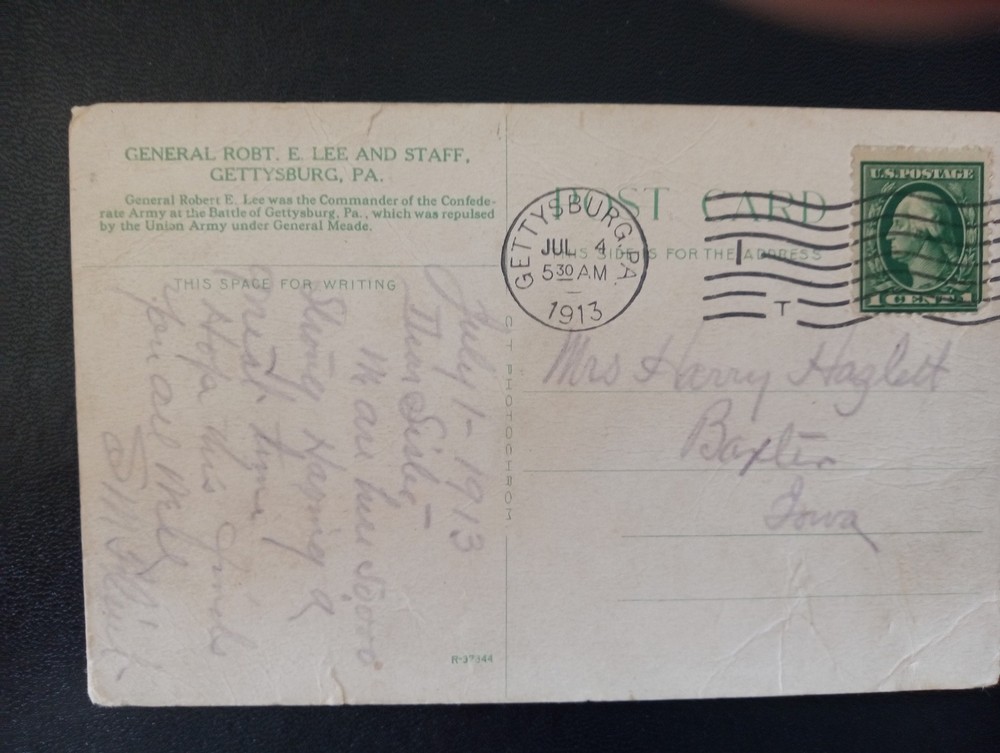 GENERAL ROBT. E. LEE AND STAFF,
GETTYSBURG, PA.
General Robert E. Lee was the Commander of the Confede-
rate Army at the Battle of Gettysburg, Pa., which was repulsed
by the Union Army under General Meade.
THIS SPACE FOR WRITING
July 1 - 1913
Dear Sister -
We are here 50000
Strong Having a
great time
Hope this finds
you all well
R-37344
C T PHOTOCHROM
POST CARD
THIS SIDE IS FOR THE ADDRESS
GETTYSBURG, PA.
JUL 4
5 30 A.M.
1913
1
T
U.S. POSTAGE
1 CENT 1
Mrs Harry Hazlett
Baxter
Iowa